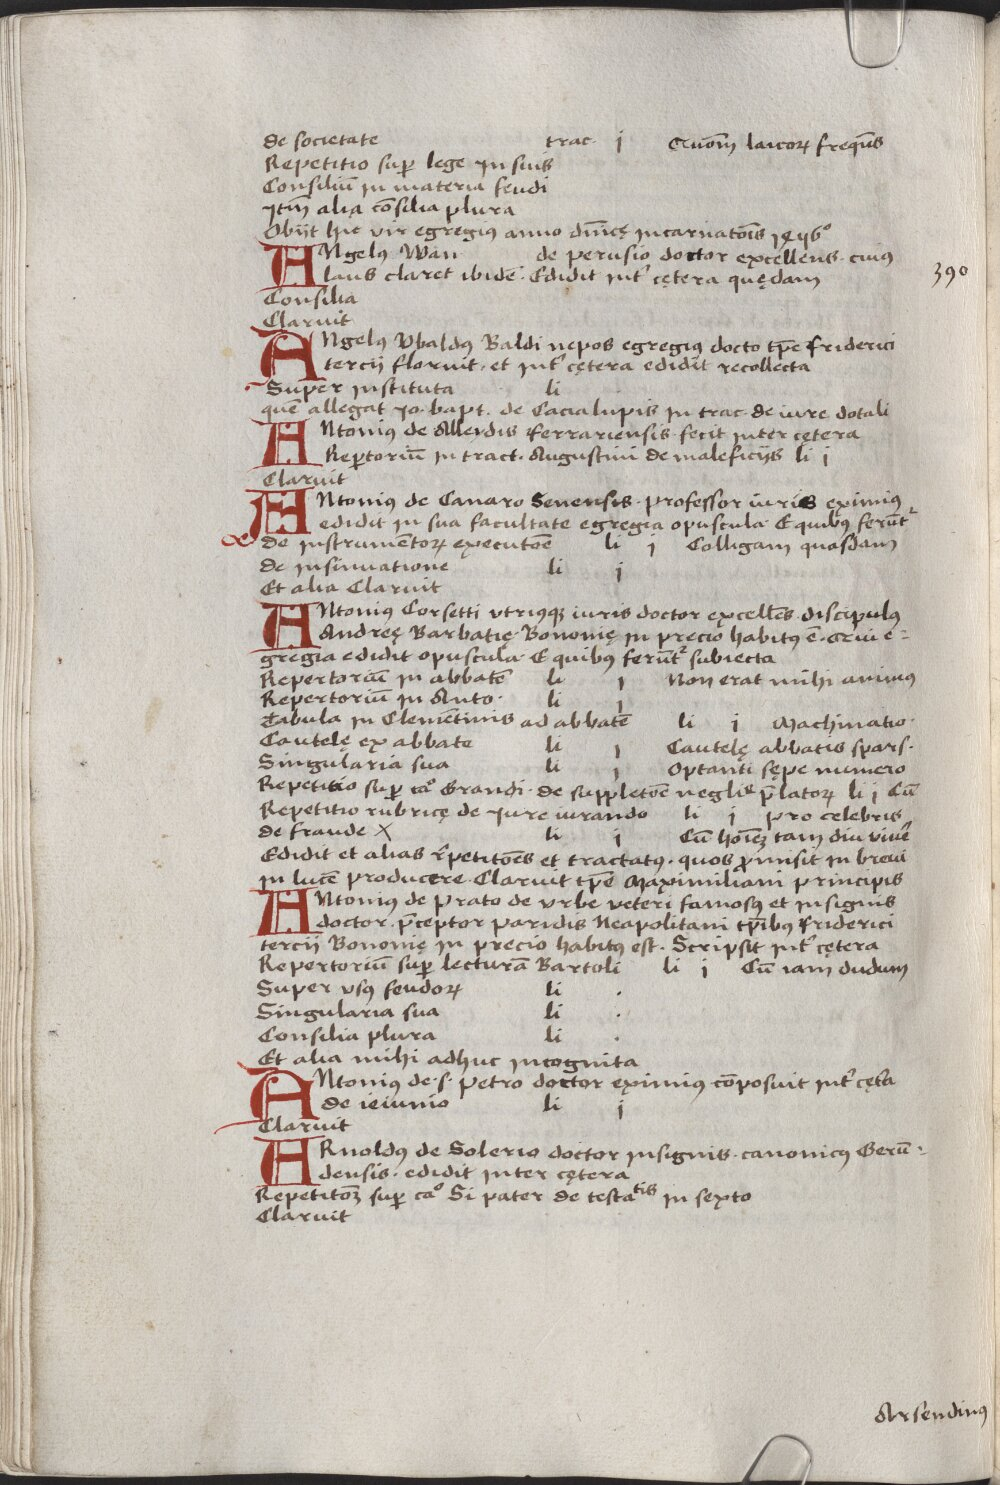 de societate trac. j Quom̄ laicoꝝ freqūs
Repetitio sup̱ lege In suis
Consiliū in materia feudi
Itm̄ alia cōsilia plura
Obijt hic vir egregiꝰ anno dn̄icę incarnatōis 1496°
ANgelꝰ Wan de perusio doctor excellens. cuiꝰ
laus claret ibidē. Edidit int̓ cętera quędam
Consilia
Claruit
390
ANgelꝰ Vbaldꝰ Baldi nepos egregiꝰ docto tp̄e Friderici
tercij floruit. et int̓ cętera edidit recollecta
Super instituta li .
quē allegat Jo. bapt. de Cacialupis in trac. de iure dotali
ANtoniꝰ de Allerdis Ferrariensis. fecit inter cętera
Rep̱toriū in tract. Augustini de maleficijs li j
Claruit
ANtoniꝰ de Canaro Senensis. professor iuris eximiꝰ
edidit in sua facultate egregia opuscula. E quibꝰ ferūt᷑
de instrumētoꝝ executōe li j Colligam quasdam
de insinuatione li j
Et alia Claruit
ANtoniꝰ Corsetti vtriusqꝫ iuris doctor excellēs. discipulꝰ
Andreę Barbatię. Bononię in precio habitꝰ ē. Qui e-
gregia edidit opuscula. E quibꝰ ferūt᷑ subiecta
Repertoriū in abbatē li j Non erat mihi animus
Repertoriū in Anto. li j
Tabula in Clemētinis ad abbatē li j Machinatio.
Cautelę ex abbate li j Cautelę abbatis spars.
Singularia sua li j Optanti sępe numero
Repetitio sup̱ ca° Grandi. de suppletōe negliᵉ p̄latoꝝ li j Cū
Repetitio rubricę de Iure iurando li j pro celebris
de fraude X li j Cū hoīeꝫ tam diu viūe
Edidit et alias r̄petitōes et tractatꝰ. quos p̱misit in breui
in lucē producere. Claruit tp̄e Maximiliani principis
ANtoniꝰ de Prato de vrbe veteri famosꝰ et insignis
doctor. p̄ceptor Paridis Neapolitani tp̄ibꝰ Friderici
tercij Bononię in precio habitꝰ est. Scripsit int̓ cętera
Repertoriū sup̱ lecturā Bartoli li j Cū iam dudum
Super vsꝰ feudoꝝ li .
Singularia sua li .
Consilia plura li .
Et alia mihi adhuc incognita
ANtoniꝰ de. s. Petro doctor eximiꝰ cōposuit int̓ cęt̓a
de ieiunio li j
Claruit
ARnoldꝰ de Solerio doctor insignis. canonicꝰ Gerū-
densis. edidit inter cętera
Repetitōꝫ sup̱ ca° Si pater de testaᵗⁱˢ in sexto
Claruit
Arsendinꝰ